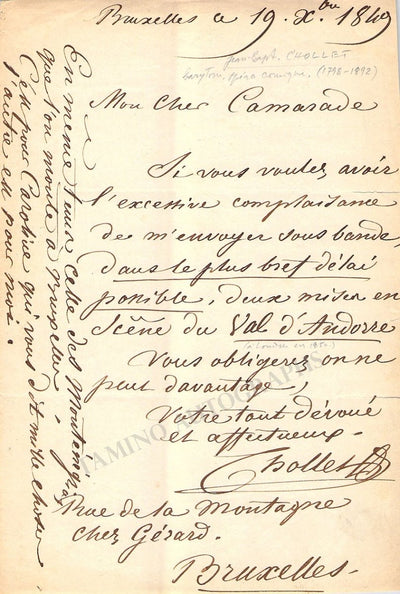 Bruxelles ce 19. Xbre 1849
Jean-Bapt. CHOLLET
baryton, opéra comique. (1798-1892)
Mon cher Camarade
Si vous voulez avoir
l'excessive complaisance
de m'envoyer sous bande,
dans le plus bref délai
possible, deux mises en
scène du Val d'Andorre
(à Londres en 1850)
Vous obligerez on ne
peut davantage,
Votre tout dévoué
et affectueux.
Chollet
Rue de la Montagne
chez Gérard.
Bruxelles.
En même temps celle des Monténégrins
que l'on monte à Bruxelles.
C'est pour Caroline qui vous dit mille choses
l'autre est pour moi.
TAMINO AUTOGRAPHS